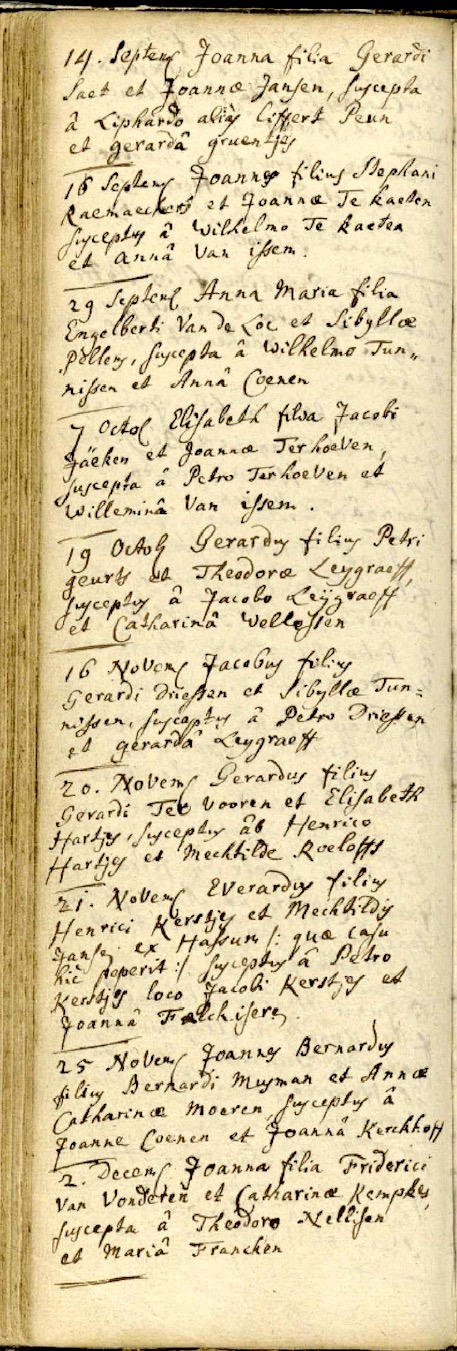 14. Septemb Joanna filia Gerardi
Saet et Joannæ Jansen, suscepta
â Liphardo aliàs Liffert Peun
et gerardâ gruentjes
16 Septemb Joannes filius Stephani
Raemaeckers et Joannæ Te kaeten
susceptus â Wilhelmo Te kaeten
et Annâ Van issem.
29 Septemb Anna Maria filia
Engelberti Van de Loc et Sibyllæ
Pöllens, suscepta â Wilhelmo Tun„
nissen et Annâ Coenen
7 Octob Elisabeth filia Jacobi
Jäeken et Joannæ Terhoeven,
suscepta â Petro Terhoeven et
Willeminâ Van issem.
19 Octob Gerardus filius Petri
geurts et Theodoræ Leygraeff,
susceptus â Jacobo Leÿgraeff
et Catharinâ Vellessen
16 Novemb Jacobus filius
Gerardi Driessen et Sibyllæ Tun=
nissen, susceptus â Petro Driessen
et gerardâ Leygraeff
20. Novemb Gerardus filius
Gerardi Ter Vooren et Elisabeth
Hartjes, susceptus âb Henrico
Hartjes et Mechtilde Roeloffs
21. Novemb Everardus filius
Henrici Kerstjes et Mechtildis
Jansen ex Hassum /: quæ casu
hîc peperit :/ susceptus â Petro
Kerstjes loco Jacobi Kerstjes et
Joannâ
25 Novemb Joannes Bernardus
filius Bernardi Musman et Annæ
Catharinæ Moeren, susceptus â
Joanne Coenen et Joannâ Kerckhoff
2. Decemb Joanna filia Friderici
Van Vonderen et Catharinæ Kempkes,
suscepta â Theodoro Nellisen
et Mariâ Francken